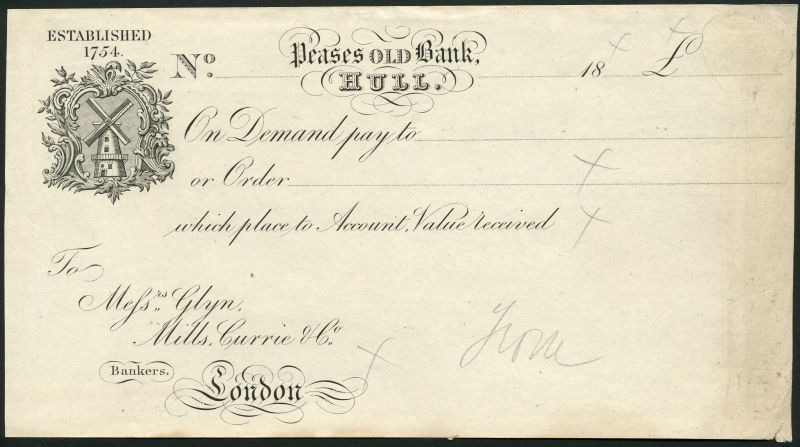 ESTABLISHED
1754.
No. Peases OLD Bank, 18 £
HULL.
On Demand pay to
or Order
which place to Account, Value received
To
Messrs. Glyn,
Mills, Currie & Co.
Bankers.
London